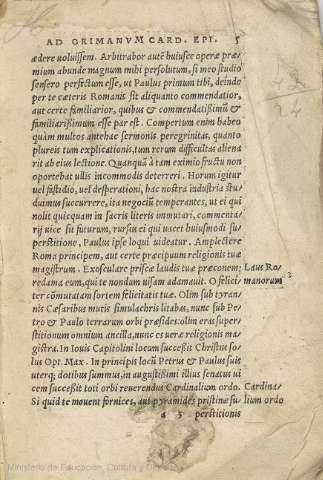 AD GRIMANVM CARD. EPI. 5
ædere uoluissem. Arbitrabor autē huiusce operæ præ
mium abunde magnum mihi persolutum, si meo studio
sensero perfectum esse, ut Paulus primum tibi, deinde
per te cæteris Romanis sit aliquanto commendatior,
aut certe familiarior, quibus & commendatissimū &
familiarissimum esse par est. Compertum enim habeo
quàm multos antehac sermonis peregrinitas, quanto
plureis tum explicationis, tum rerum difficultas aliena
rit ab eius lectione. Quanquā à tam eximio fructu non
oportebat ullis incommodis deterreri. Horum igitur
uel fastidio, uel desperationi, hac nostra industria stu
duimus succurrere, ita negociū temperantes, ut ei qui
nolit quicquam in sacris literis immutari, commenta
rij uice sit futurum, rursus ei qui uacet huiusmodi su
perstitione, Paulus ipse loqui uideatur. Amplectere
Roma principem, aut certe præcipuum religionis tuæ
magistrum. Exosculare priscæ laudis tuæ præconem; Laus Ro-
redama eum, qui te nondum uisam adamauit. O felici manorum
ter cōmutatam sortem felicitatis tuæ. Olim sub tyran-
nis Cæsaribus mutis simulachris litabas, nunc sub Pe
tro & Paulo terrarum orbi præsides: olim eras super
stitionum omnium ancilla, nunc es uera religionis ma
gistra. In Iouis Capitolini locum successit Christus so
lus Opt. Max. In principis locū Petrus & Paulus suis
uterq; dotibus summus, in augustissimi illius senatus ui
cem successit toti orbi reuerendus Cardinalium ordo. Cardina-
Si quid te mouent fornices, aut pyramides pristinæ su lium ordo
a 5 perstitionis
Ministerio de Educación, Cultura y Deporte